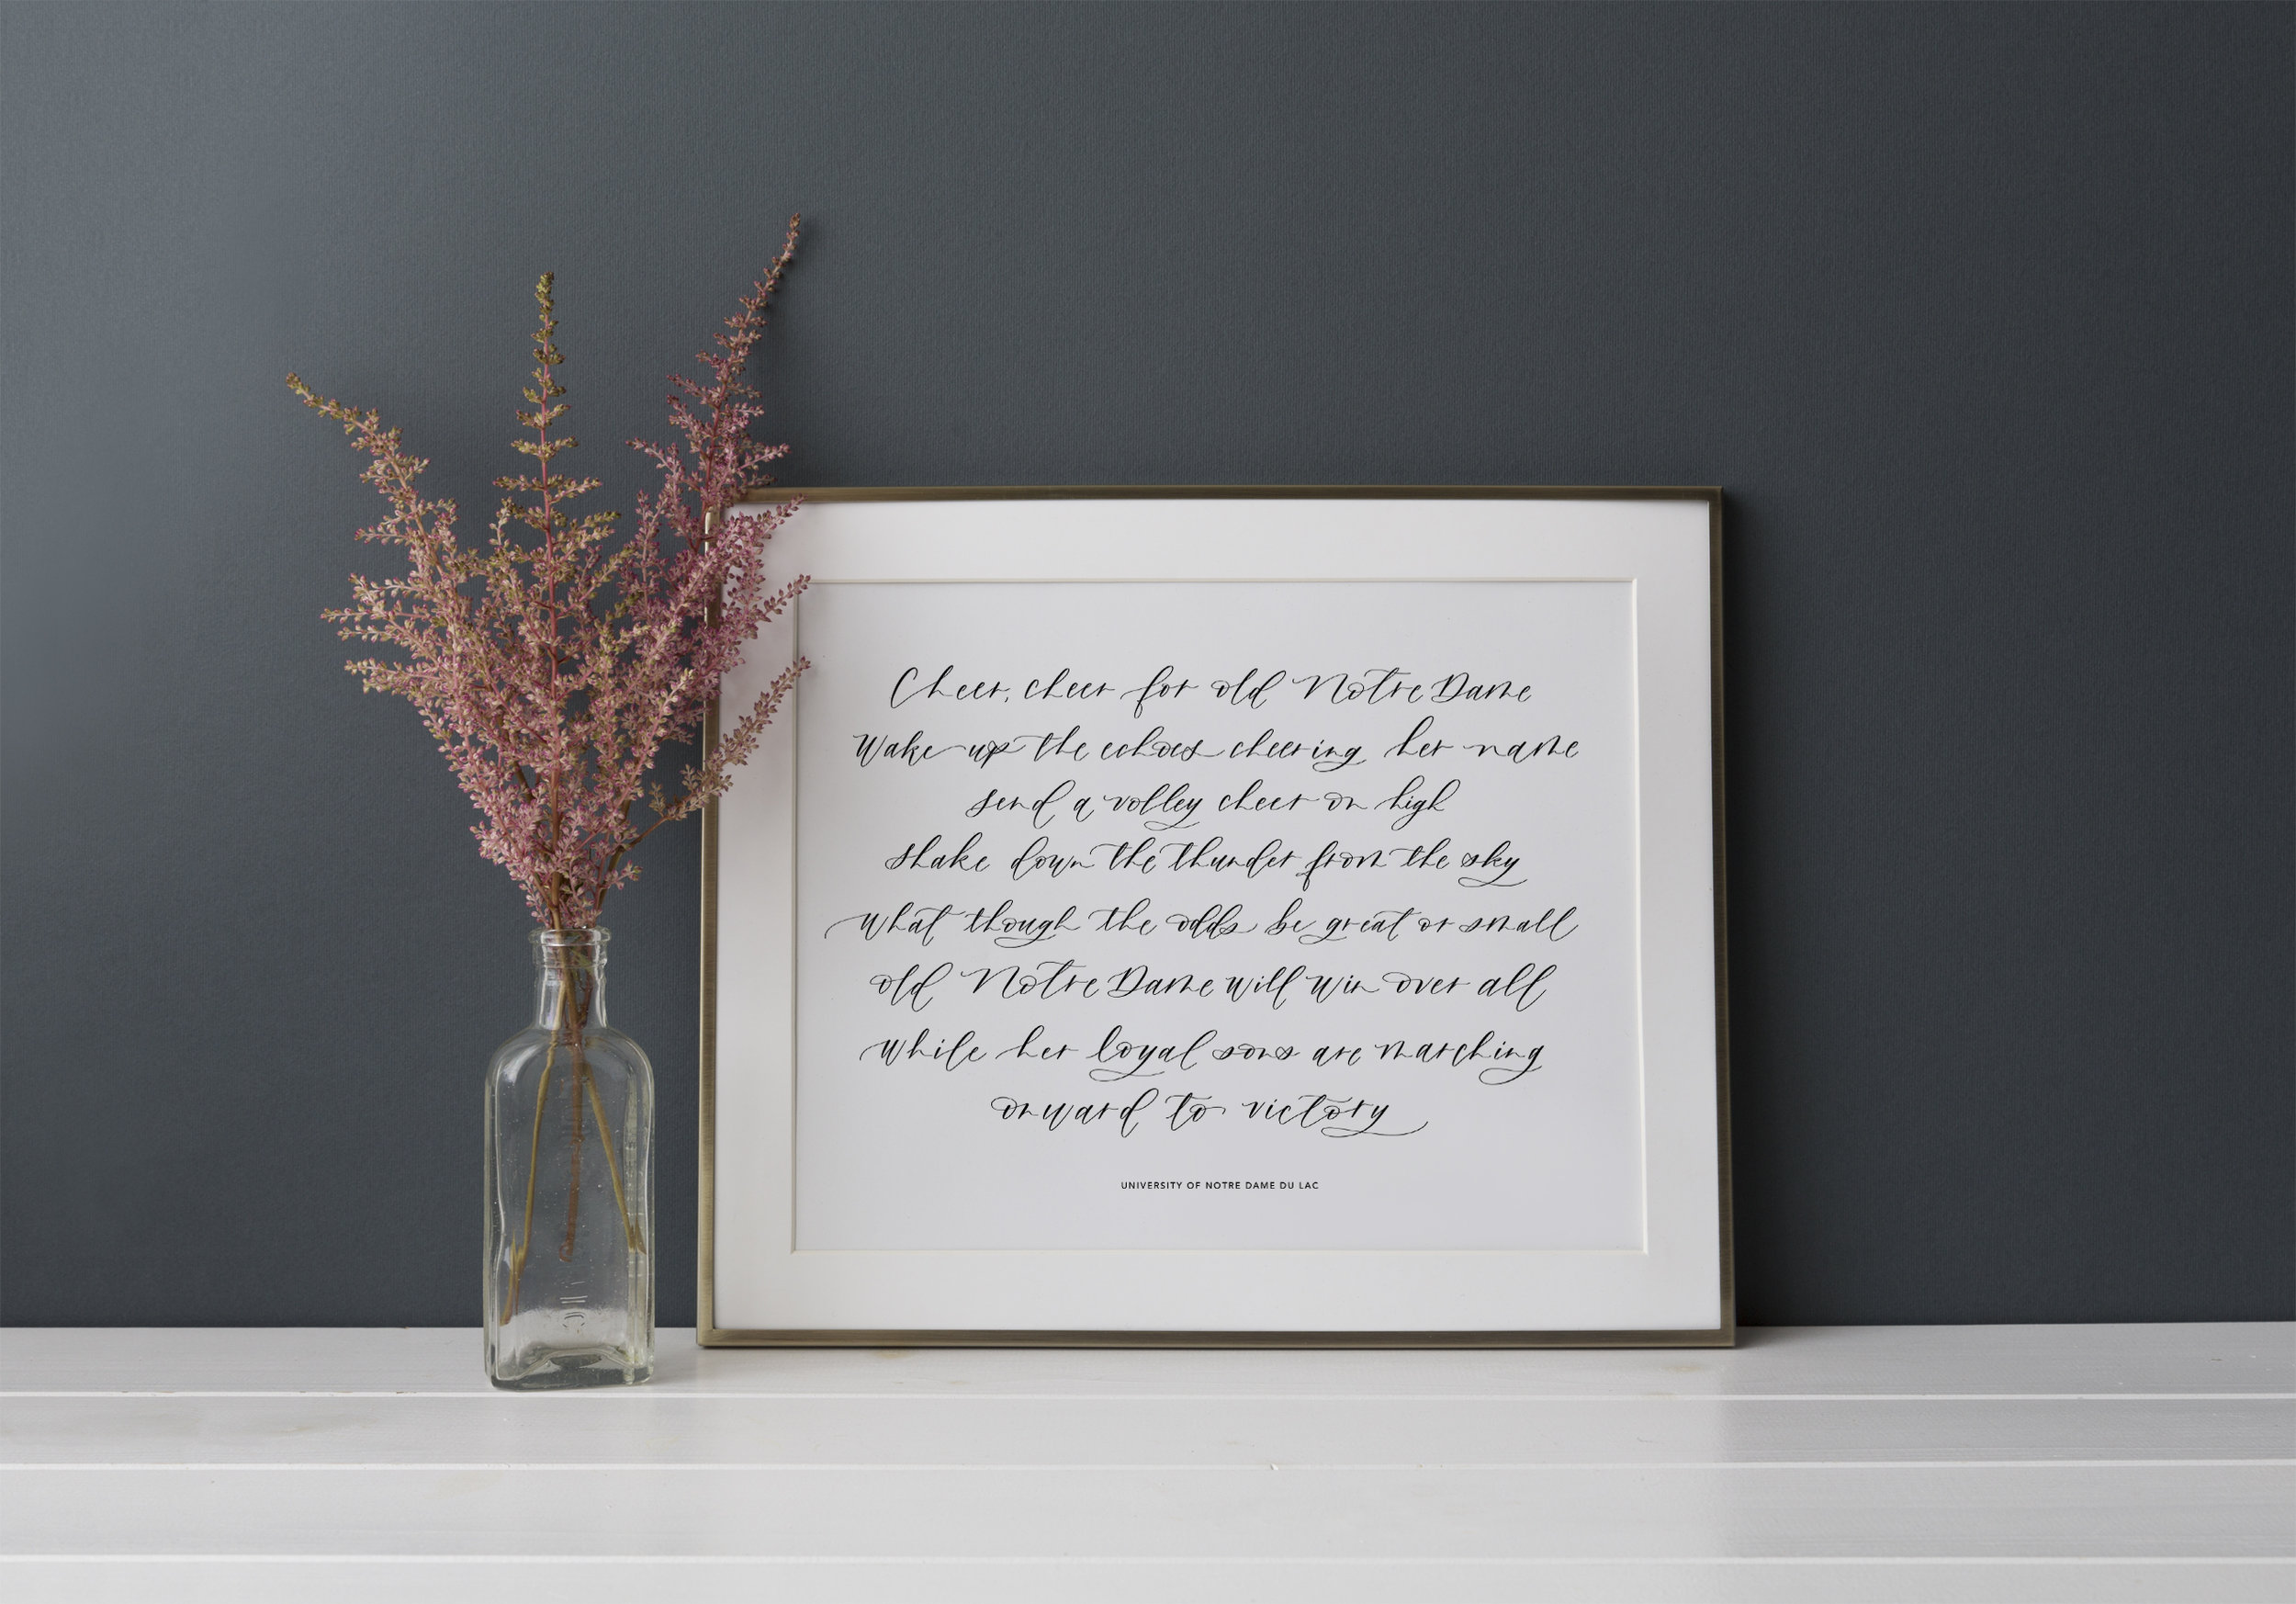 Cheer, cheer for old Notre Dame
Wake up the echoes cheering her name
send a volley cheer on high
shake down the thunder from the sky
what though the odds be great or small
old Notre Dame will win over all
while her loyal sons are marching
onward to victory
UNIVERSITY OF NOTRE DAME DU LAC